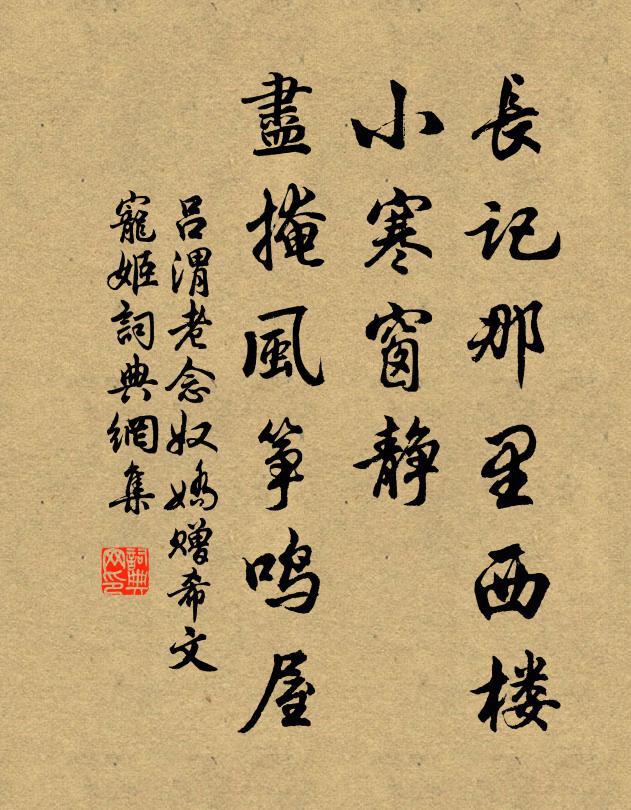 長記那里西楼
小寒窗静
盡掩風筝鳴屋
吕渭老念奴嬌赠希文
寵姬詞典網集
詞典网印